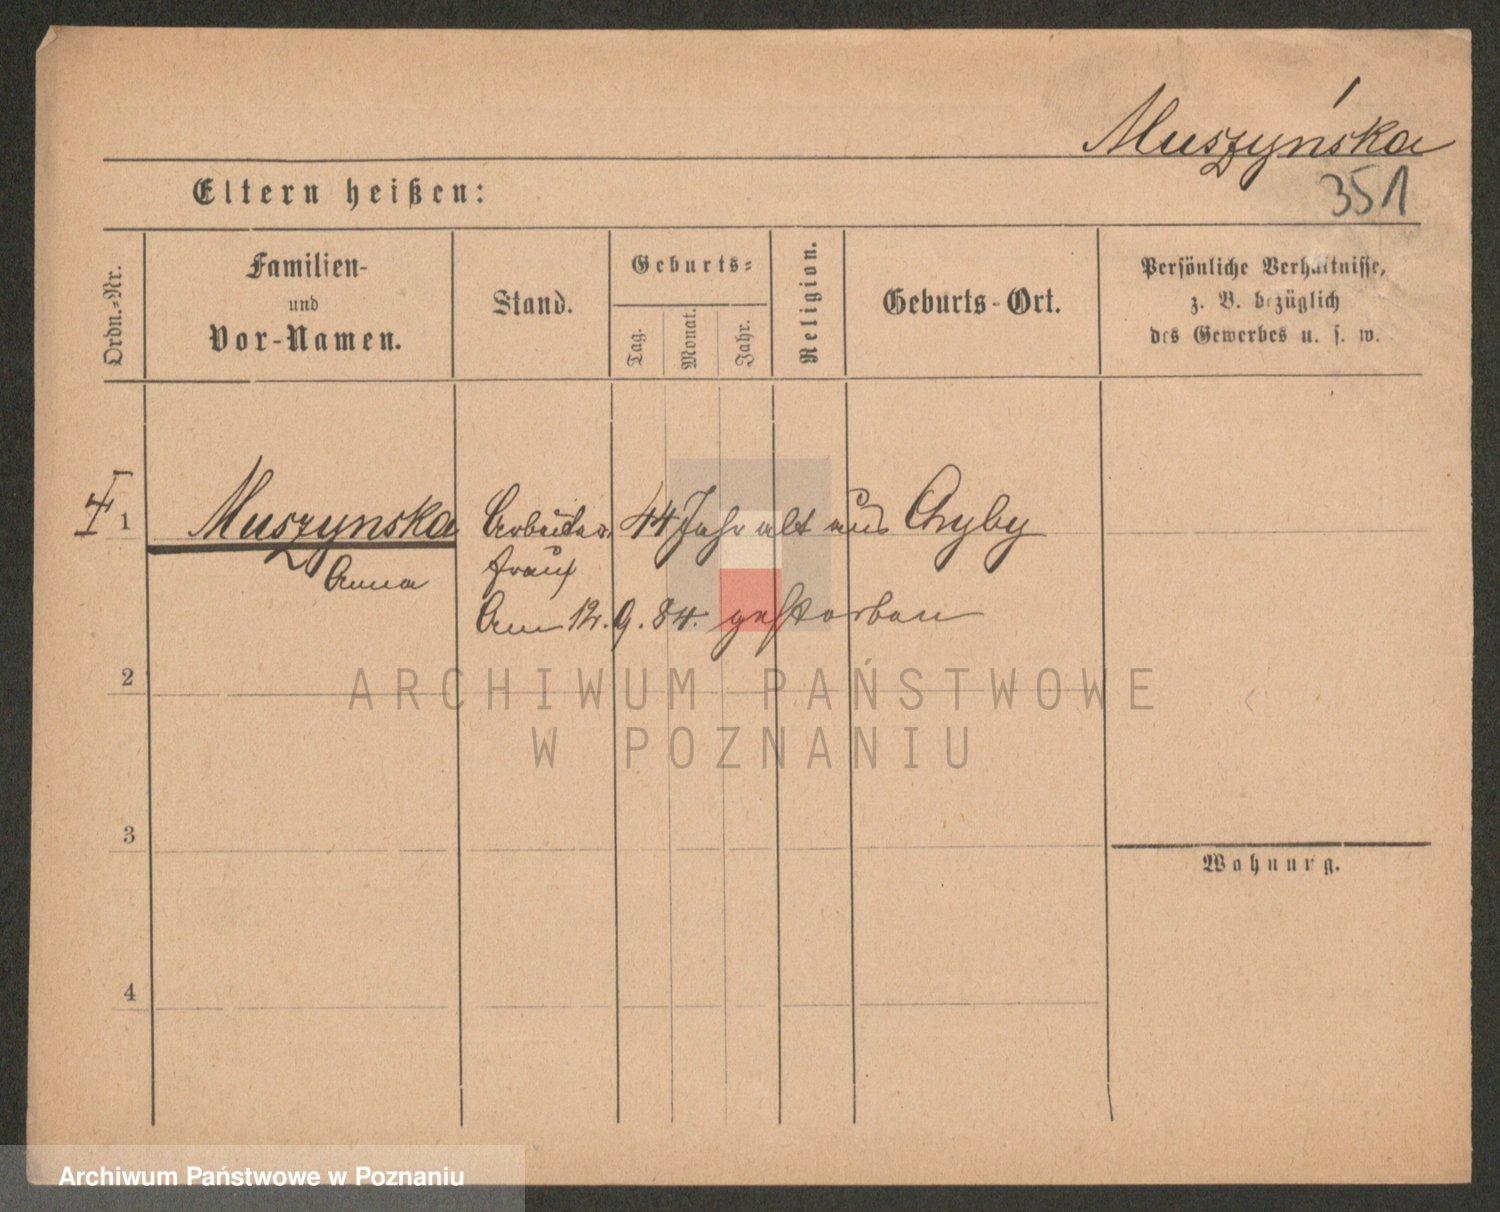 Muszyńska
351
Eltern heißen:
Ordn.-Nr.
Familien-
und
Vor-Namen.
Stand.
Geburts-
Tag.
Monat.
Jahr.
Religion.
Geburts-Ort.
Persönliche Verhältnisse,
z. B. bezüglich
des Gewerbes u. s. w.
1 Muszynska Arbeiter 44 Jahr alt aus Chyby
Anna frau
Am 12. 9. 84. gestorben
2
ARCHIWUM PAŃSTWOWE
W POZNANIU
3
Wohnung.
4
Archiwum Państwowe w Poznaniu